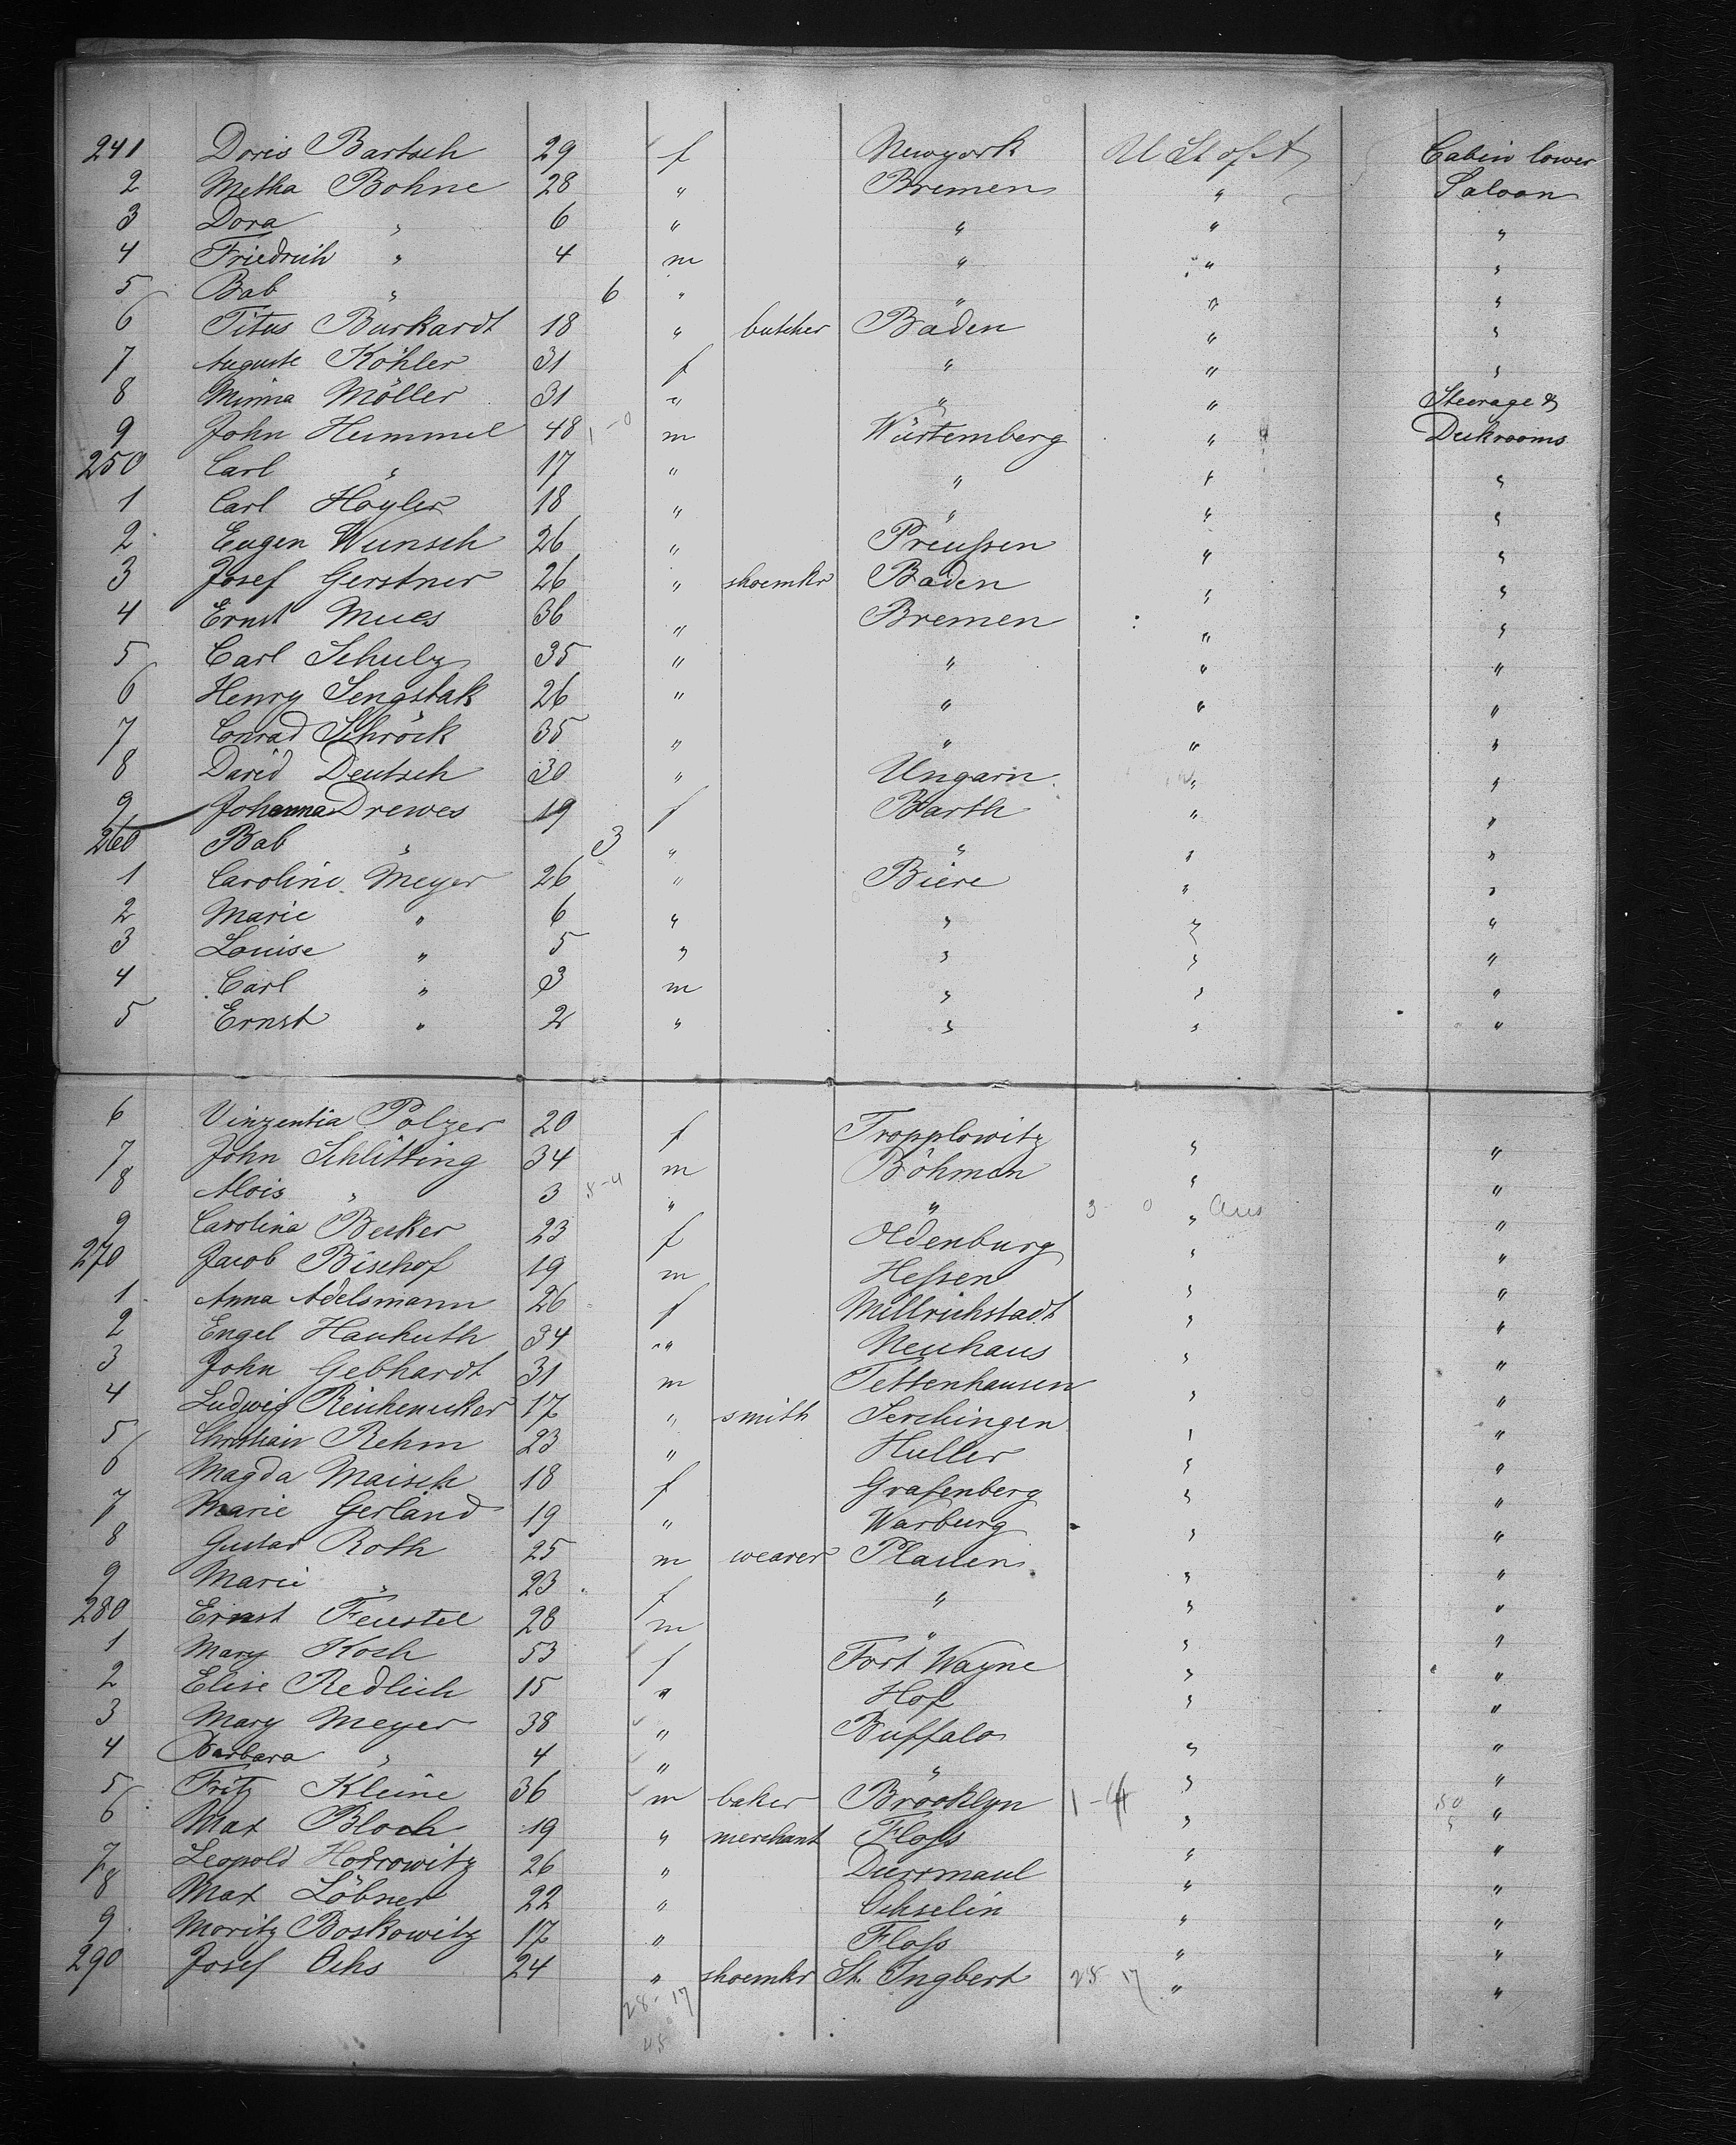 241 Doris Bartsch 29 f Newyork U St of A Cabin lower
2 Metha Bohne 28 " Bremen " Saloon
3 Dora " 6 " " " "
4 Friedrich " 4 m " " "
5 Bab " 6 " " " "
6 Titus Burkardt 18 " butcher Baden " "
7 Auguste Köhler 31 f " " "
8 Minna Möller 31 " " " Steerage &
9 John Hummel 48 1-0 m Würtemberg " Deckrooms
250 Carl " 17 " " " "
1 Carl Hoyler 18 " " " "
2 Eugen Wunsch 26 " Preußen " "
3 Josef Gerstner 26 " shoemkr Baden " "
4 Ernst Mues 36 " Bremen " "
5 Carl Schulz 35 " " " "
6 Henry Sengstak 26 " " " "
7 Conrad Schröck 35 " " " "
8 David Deutsch 30 " Ungarn " "
9 Johanna Drewes 19 f Barth " "
260 Bab " 3 " " " "
1 Caroline Meyer 26 " Biere " "
2 Marie " 6 " " " "
3 Louise " 5 " " " "
4 Carl " 3 m " " "
5 Ernst " 2 " " " "
6 Vinzentia Polzer 20 f Tropplowitz " "
7 John Schlitting 34 m Böhmen " "
8 Alois " 3 " " " "
9 Carolina Becker 23 f Oldenburg " "
270 Jacob Bischof 19 m Heßen " "
1 Anna Adelsmann 26 f Mellrichstadt " "
2 Engel Haukuth 34 " Neuhaus " "
3 John Gebhardt 31 m Tettenhausen " "
4 Ludwig Reichenecker 17 " smith Serchingen " "
5 Christian Rehm 23 " Huller " "
6 Magda Maisch 18 f Grafenberg " "
7 Marie Gerland 19 " Warburg " "
8 Gustav Roth 25 m weaver Plauen " "
9 Marie " 23 f " " "
280 Ernst Feustel 28 m " " "
1 Mary Koch 53 f Fort Wayne " "
2 Elise Redlich 15 " Hof " "
3 Mary Meyer 38 " Buffalo " "
4 Barbara " 4 " " " "
5 Fritz Kleine 36 m baker Brooklyn " "
6 Max Bloch 19 " merchant Floß " "
7 Leopold Horrowitz 26 " Durrmaul " "
8 Max Löbner 22 " " "
9 Moritz Boskowitz 17 " Floß " "
290 Josef Ochs 24 " shoemkr St. Ingbert 28 17 " "
28-17
45